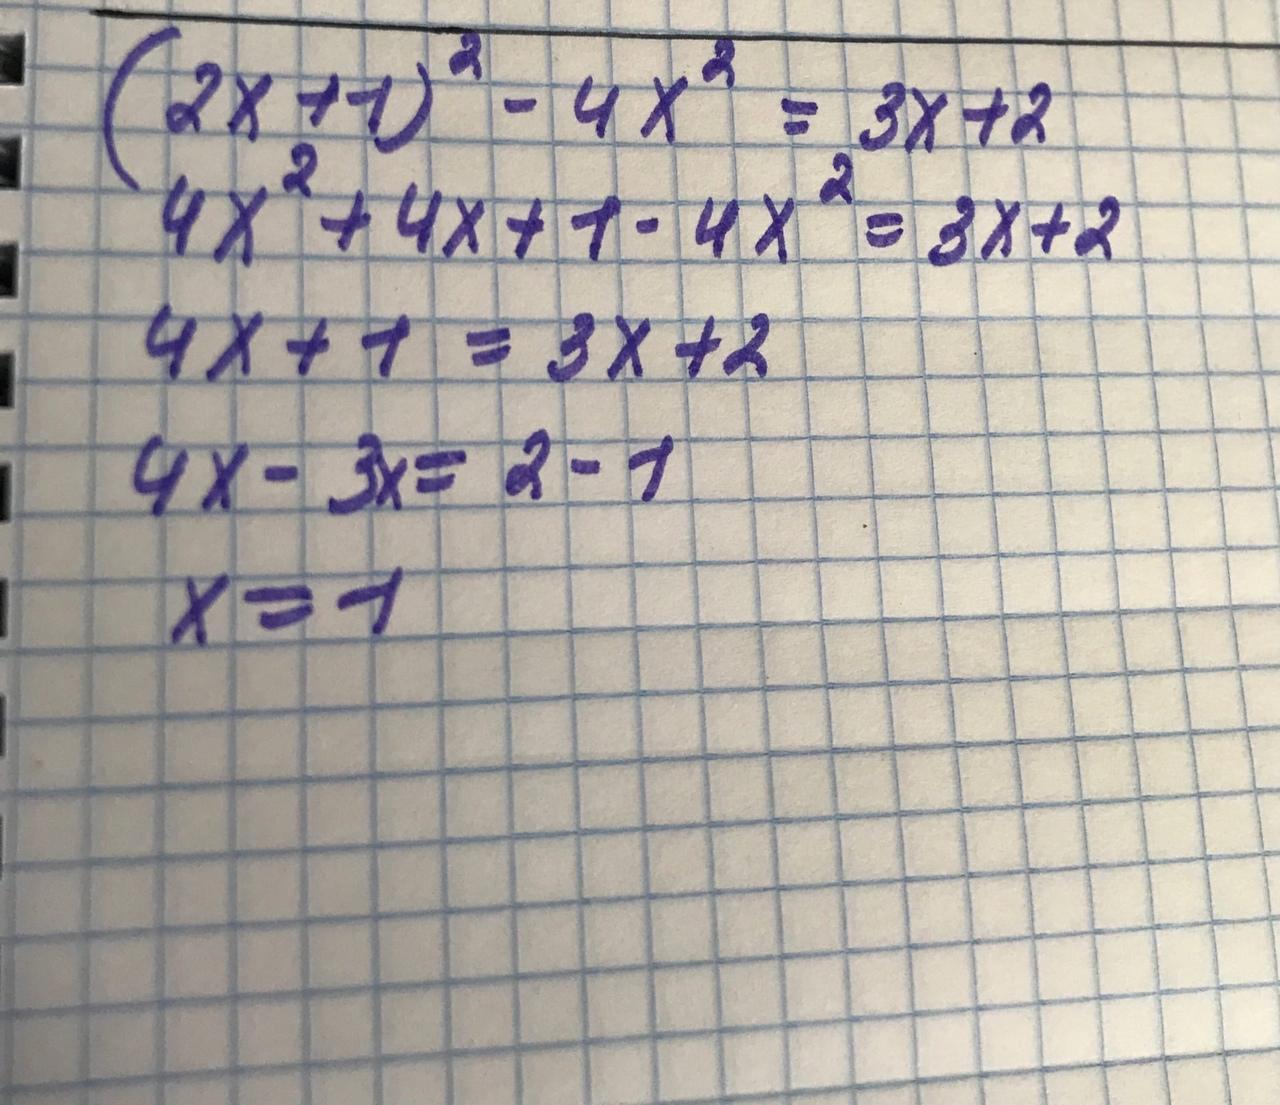 (2x+1)² - 4x² = 3x+2
4x² + 4x + 1 - 4x² = 3x+2
4x + 1 = 3x + 2
4x - 3x = 2 - 1
x = 1